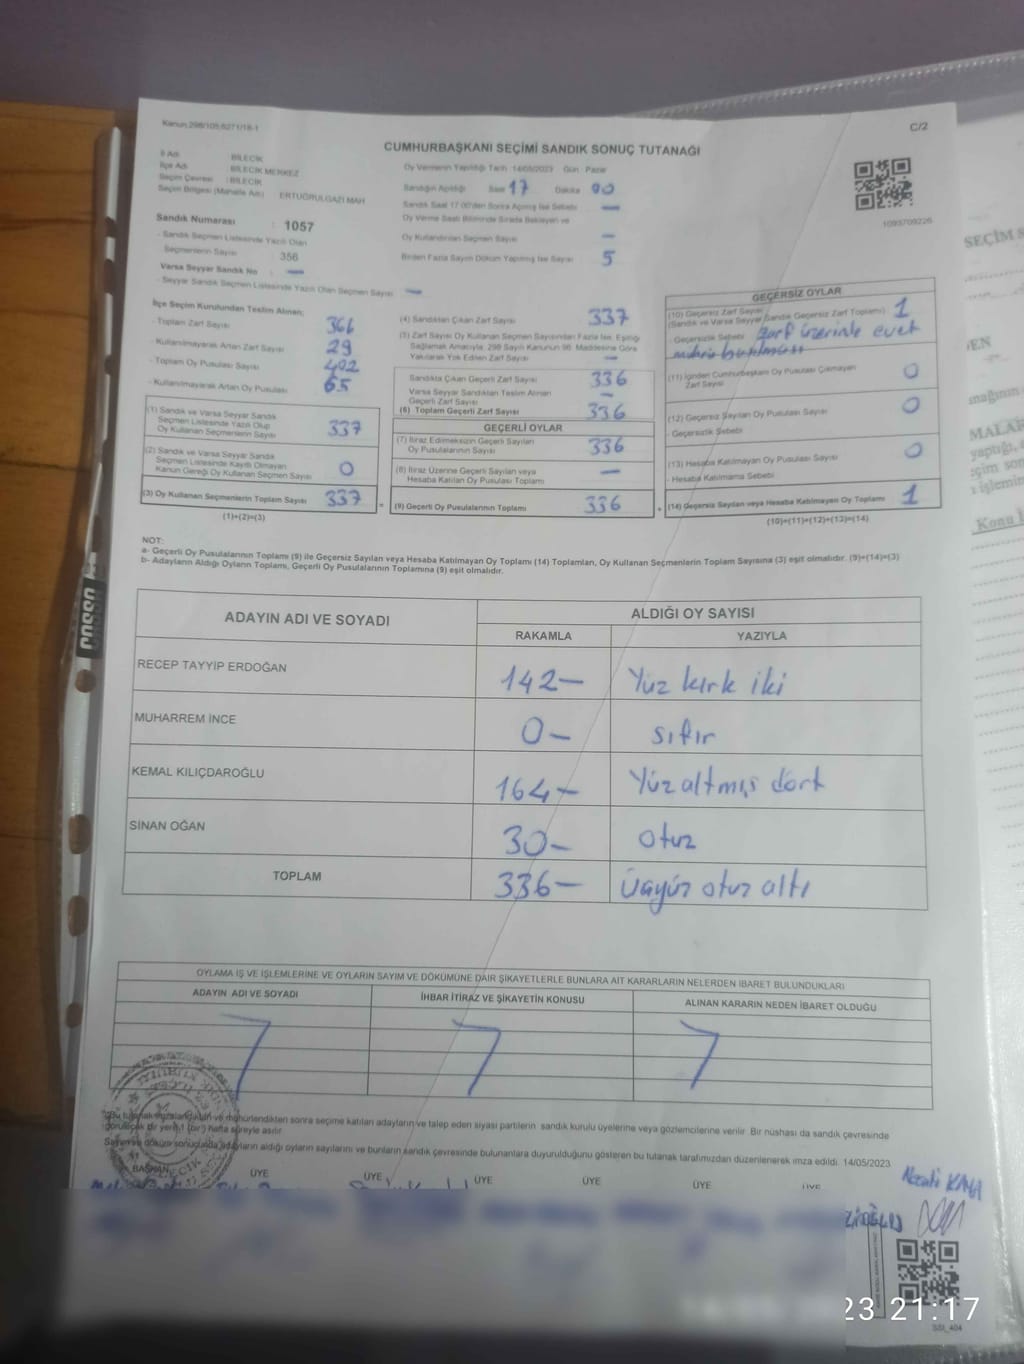 Kanun.298/105,6271/18-1
C/2
CUMHURBAŞKANI SEÇİMİ SANDIK SONUÇ TUTANAĞI
İl Adı : BİLECİK
İlçe Adı : BİLECİK MERKEZ
Seçim Çevresi : BİLECİK
Seçim Bölgesi (Mahalle Adı) ERTUĞRULGAZİ MAH
Oy Vermenin Yapıldığı Tarih 14/05/2023 Gün Pazar
Sandığın Açıldığı Saat 17 Dakika 00
Sandık Saat 17.00'den Sonra Açılmış İse Sebebi —
Oy Verme Saati Bitiminde Sırada Bekleyen ve
Oy Kullandırılan Seçmen Sayısı —
Birden Fazla Sayım Döküm Yapılmış İse Sayısı 5
1093709226
Sandık Numarası : 1057
- Sandık Seçmen Listesinde Yazılı Olan
Seçmenlerin Sayısı 356
Varsa Seyyar Sandık No : —
- Seyyar Sandık Seçmen Listesinde Yazılı Olan Seçmen Sayısı —
İlçe Seçim Kurulundan Teslim Alınan;
- Toplam Zarf Sayısı 366
- Kullanılmayarak Artan Zarf Sayısı 29
- Toplam Oy Pusulası Sayısı 402
- Kullanılmayarak Artan Oy Pusulası 65
(1) Sandık ve Varsa Seyyar Sandık
Seçmen Listesinde Yazılı Olup
Oy Kullanan Seçmenlerin Sayısı 337
(2) Sandık ve Varsa Seyyar Sandık
Seçmen Listesinde Kayıtlı Olmayan
Kanun Gereği Oy Kullanan Seçmen Sayısı 0
(3) Oy Kullanan Seçmenlerin Toplam Sayısı 337
(1)+(2)=(3)
(4) Sandıktan Çıkan Zarf Sayısı 337
(5) Zarf Sayısı Oy Kullanan Seçmen Sayısından Fazla İse, Eşitliği
Sağlamak Amacıyla, 298 Sayılı Kanunun 98. Maddesine Göre
Yakılarak Yok Edilen Zarf Sayısı —
Sandıkta Çıkan Geçerli Zarf Sayısı 336
Varsa Seyyar Sandıktan Teslim Alınan
Geçerli Zarf Sayısı —
(6) Toplam Geçerli Zarf Sayısı 336
GEÇERLİ OYLAR
(7) İtiraz Edilmeksizin Geçerli Sayılan
Oy Pusulalarının Sayısı 336
(8) İtiraz Üzerine Geçerli Sayılan veya
Hesaba Katılan Oy Pusulası Toplamı —
(9) Geçerli Oy Pusulalarının Toplamı 336
GEÇERSİZ OYLAR
(10) Geçersiz Zarf Sayısı
(Sandık ve Varsa Seyyar Sandık Geçersiz Zarf Toplamı) 1
Geçersizlik Sebebi zarf üzerinde evet
mührü
(11) İçinden Cumhurbaşkanı Oy Pusulası Çıkmayan
Zarf Sayısı 0
(12) Geçersiz Sayılan Oy Pusulası Sayısı 0
- Geçersizlik Sebebi
(13) Hesaba Katılmayan Oy Pusulası Sayısı 0
- Hesaba Katılmama Sebebi
(14) Geçersiz Sayılan veya Hesaba Katılmayan Oy Toplamı 1
(10)+(11)+(12)+(13)=(14)
NOT:
a- Geçerli Oy Pusulalarının Toplamı (9) ile Geçersiz Sayılan veya Hesaba Katılmayan Oy Toplamı (14) Toplamları, Oy Kullanan Seçmenlerin Toplam Sayısına (3) eşit olmalıdır. (9)+(14)=(3)
b- Adayların Aldığı Oyların Toplamı, Geçerli Oy Pusulalarının Toplamına (9) eşit olmalıdır.
ADAYIN ADI VE SOYADI ALDIĞI OY SAYISI
RAKAMLA YAZIYLA
RECEP TAYYİP ERDOĞAN 142— Yüz kırk iki
MUHARREM İNCE 0— sıfır
KEMAL KILIÇDAROĞLU 164— Yüz altmış dört
SİNAN OĞAN 30— otuz
TOPLAM 336— üçyüz otuz altı
OYLAMA İŞ VE İŞLEMLERİNE VE OYLARIN SAYIM VE DÖKÜMÜNE DAİR ŞİKAYETLERLE BUNLARA AİT KARARLARIN NELERDEN İBARET BULUNDUKLARI
ADAYIN ADI VE SOYADI İHBAR İTİRAZ VE ŞİKAYETİN KONUSU ALINAN KARARIN NEDEN İBARET OLDUĞU
*Bu tutanak imzalandıktan ve mühürlendikten sonra seçime katılan adayların ve talep eden siyasi partilerin sandık kurulu üyelerine veya gözlemcilerine verilir. Bir nüshası da sandık çevresinde
görülecek bir yere 1 (bir) hafta süreyle asılır.
Sayım ve döküm sonucunda adayların aldığı oyların sayısını ve bunların sandık çevresinde bulunanlara duyurulduğunu gösteren bu tutanak tarafımızdan düzenlenerek imza edildi. 14/05/2023
BAŞKAN ÜYE ÜYE ÜYE ÜYE ÜYE ÜYE
Necati KAYA
23 21:17
SSI_404
SEÇİM S
MALAR
Konu